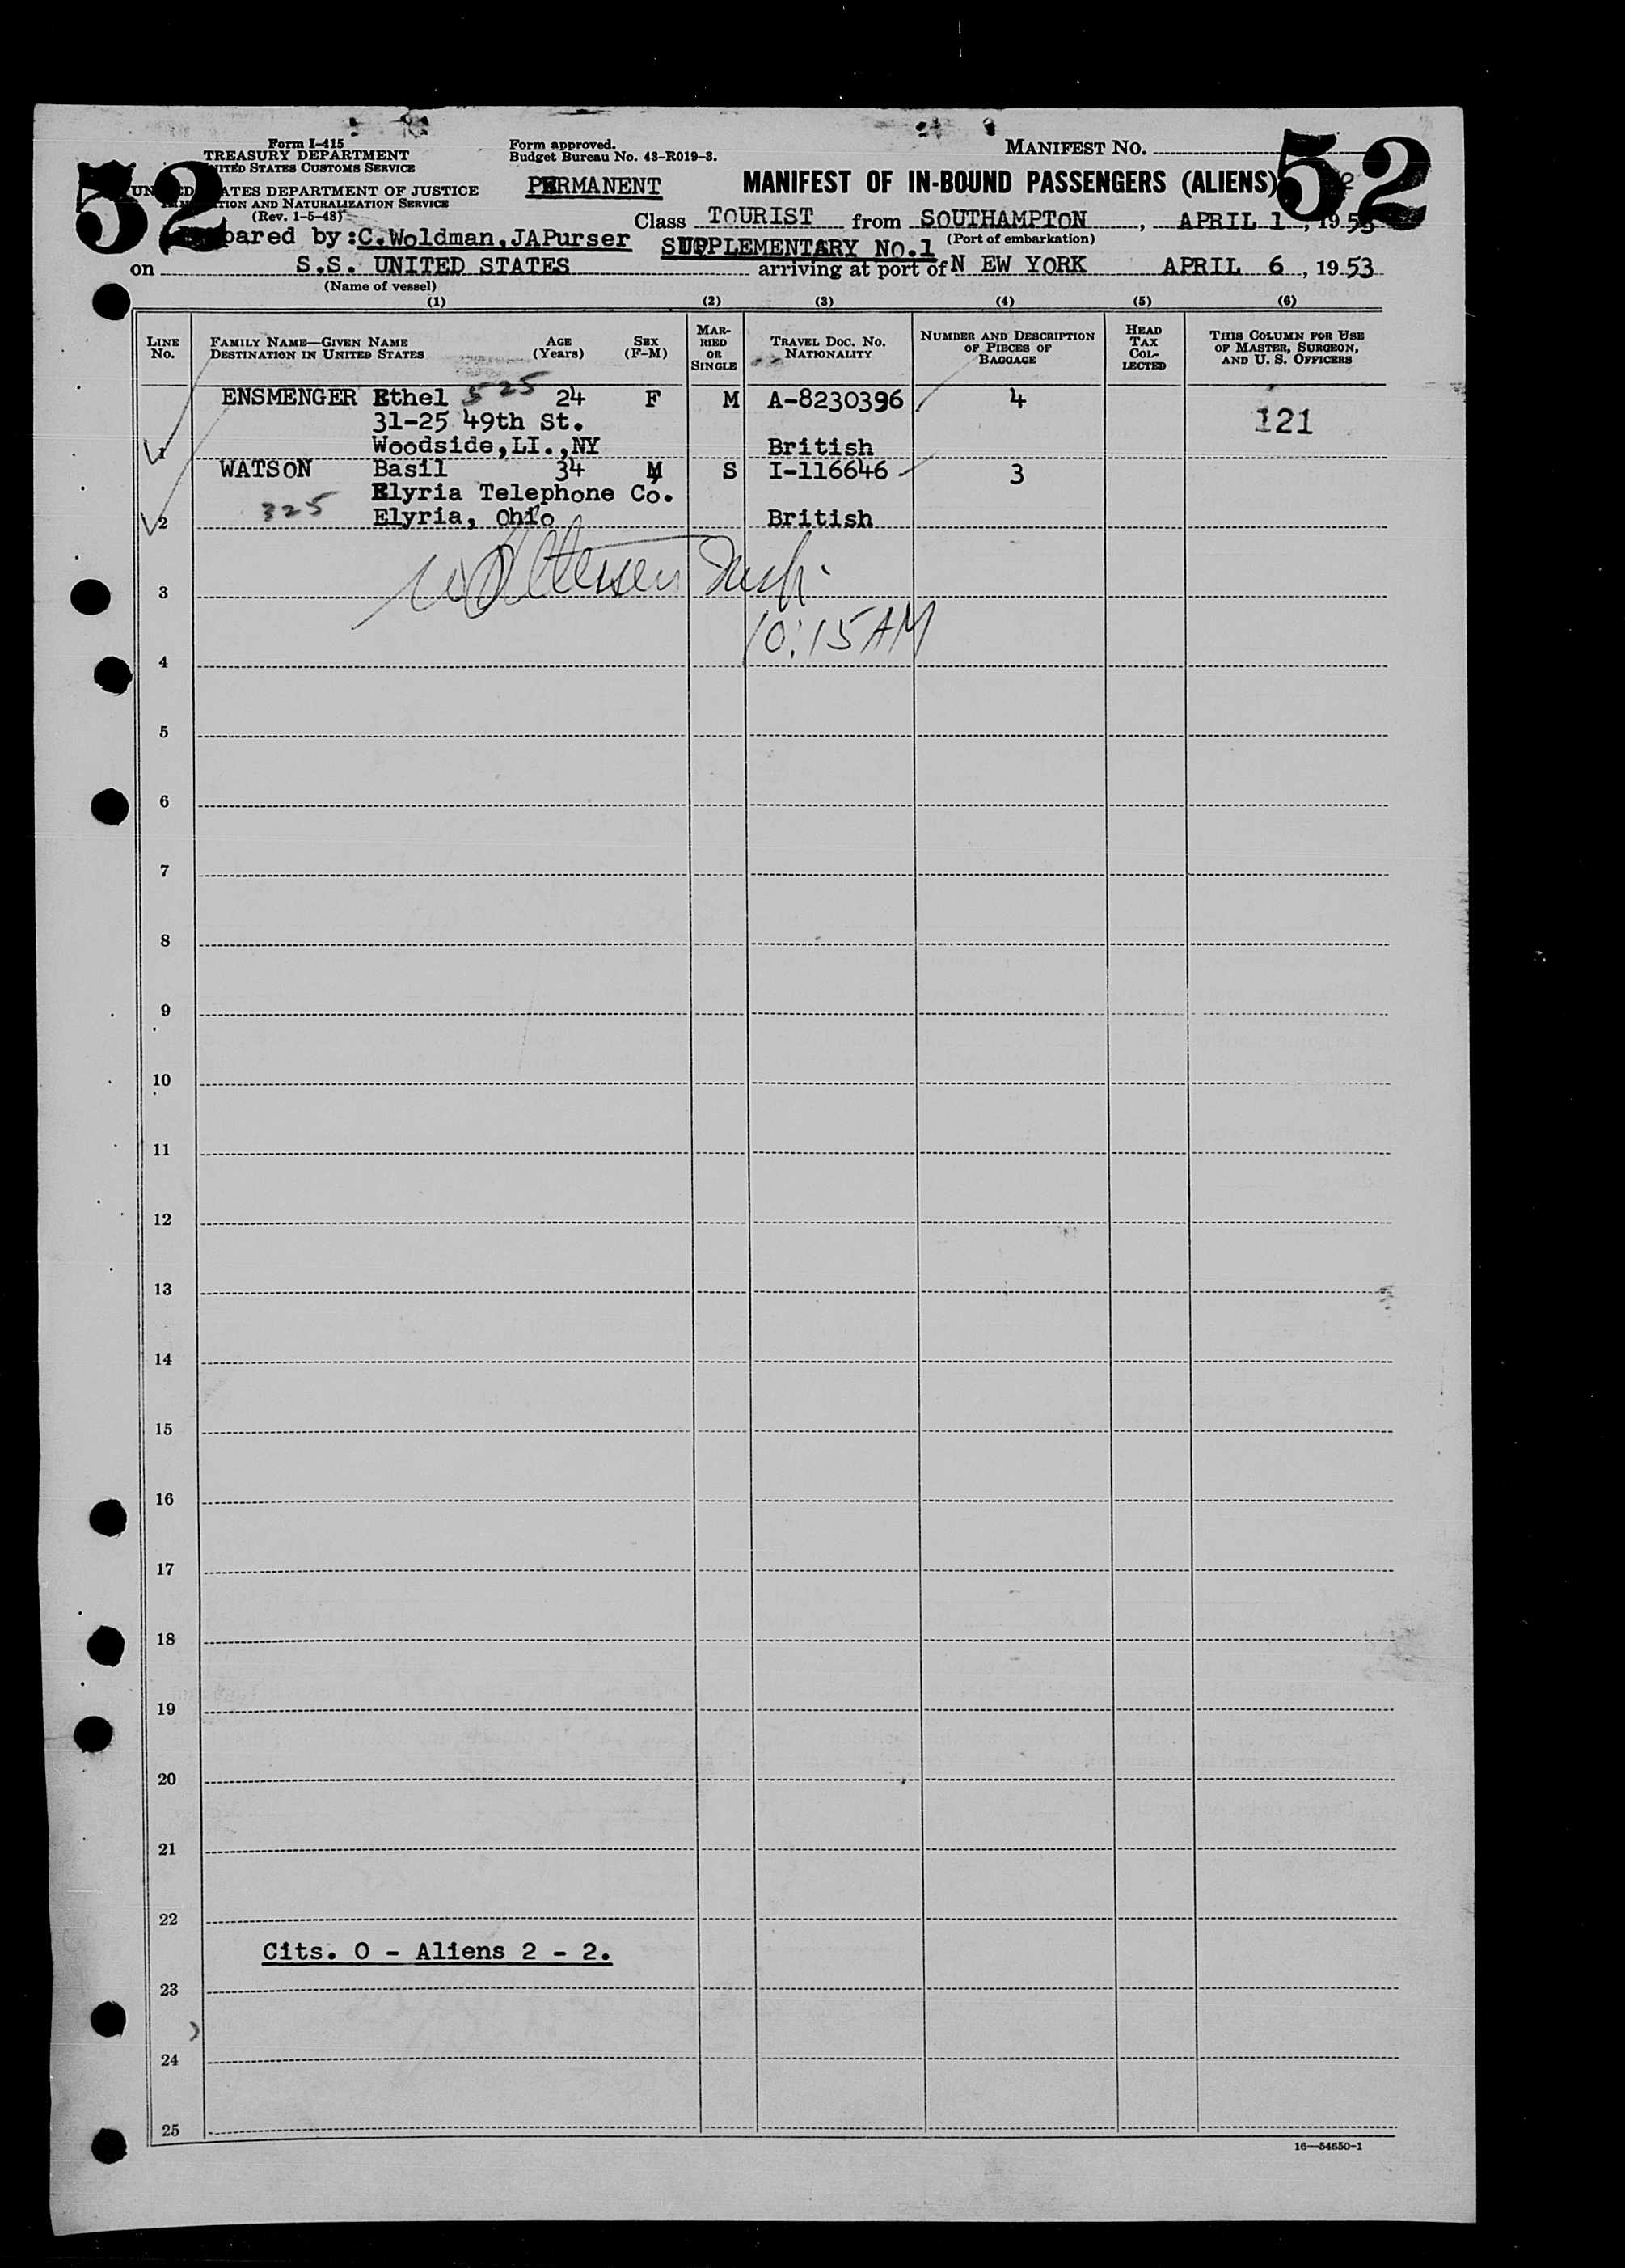 Form I-415
TREASURY DEPARTMENT
UNITED STATES CUSTOMS SERVICE
UNITED STATES DEPARTMENT OF JUSTICE
AND NATURALIZATION SERVICE
(Rev. 1-5-48)
Form approved.
Budget Bureau No. 43-R019-3.
PERMANENT
MANIFEST NO.
52
52
MANIFEST OF IN-BOUND PASSENGERS (ALIENS)
Class TOURIST from SOUTHAMPTON, APRIL 1, 1953
(Port of embarkation)
pared by: C.Woldman,JAPurser SUPPLEMENTARY NO.1
on S.S. UNITED STATES arriving at port of N EW YORK APRIL 6, 1953
(Name of vessel)
(1) (2) (3) (4) (5) (6)
LINE No. FAMILY NAME—GIVEN NAME DESTINATION IN UNITED STATES AGE (Years) SEX (F-M) MARRIED OR SINGLE TRAVEL DOC. NO. NATIONALITY NUMBER AND DESCRIPTION OF PIECES OF BAGGAGE HEAD TAX COLLECTED THIS COLUMN FOR USE OF MASTER, SURGEON, AND U. S. OFFICERS
ENSMENGER Ethel 525 24 F M A-8230396 4
31-25 49th St. 121
1 Woodside,LI.,NY British
WATSON Basil 34 M S I-116646 3
Elyria Telephone Co.
325
2 Elyria, Ohio British
3
10:15 AM
4
5
6
7
8
9
10
11
12
13
14
15
16
17
18
19
20
21
22
Cits. 0 - Aliens 2 - 2.
23
24
25
16—54650-1